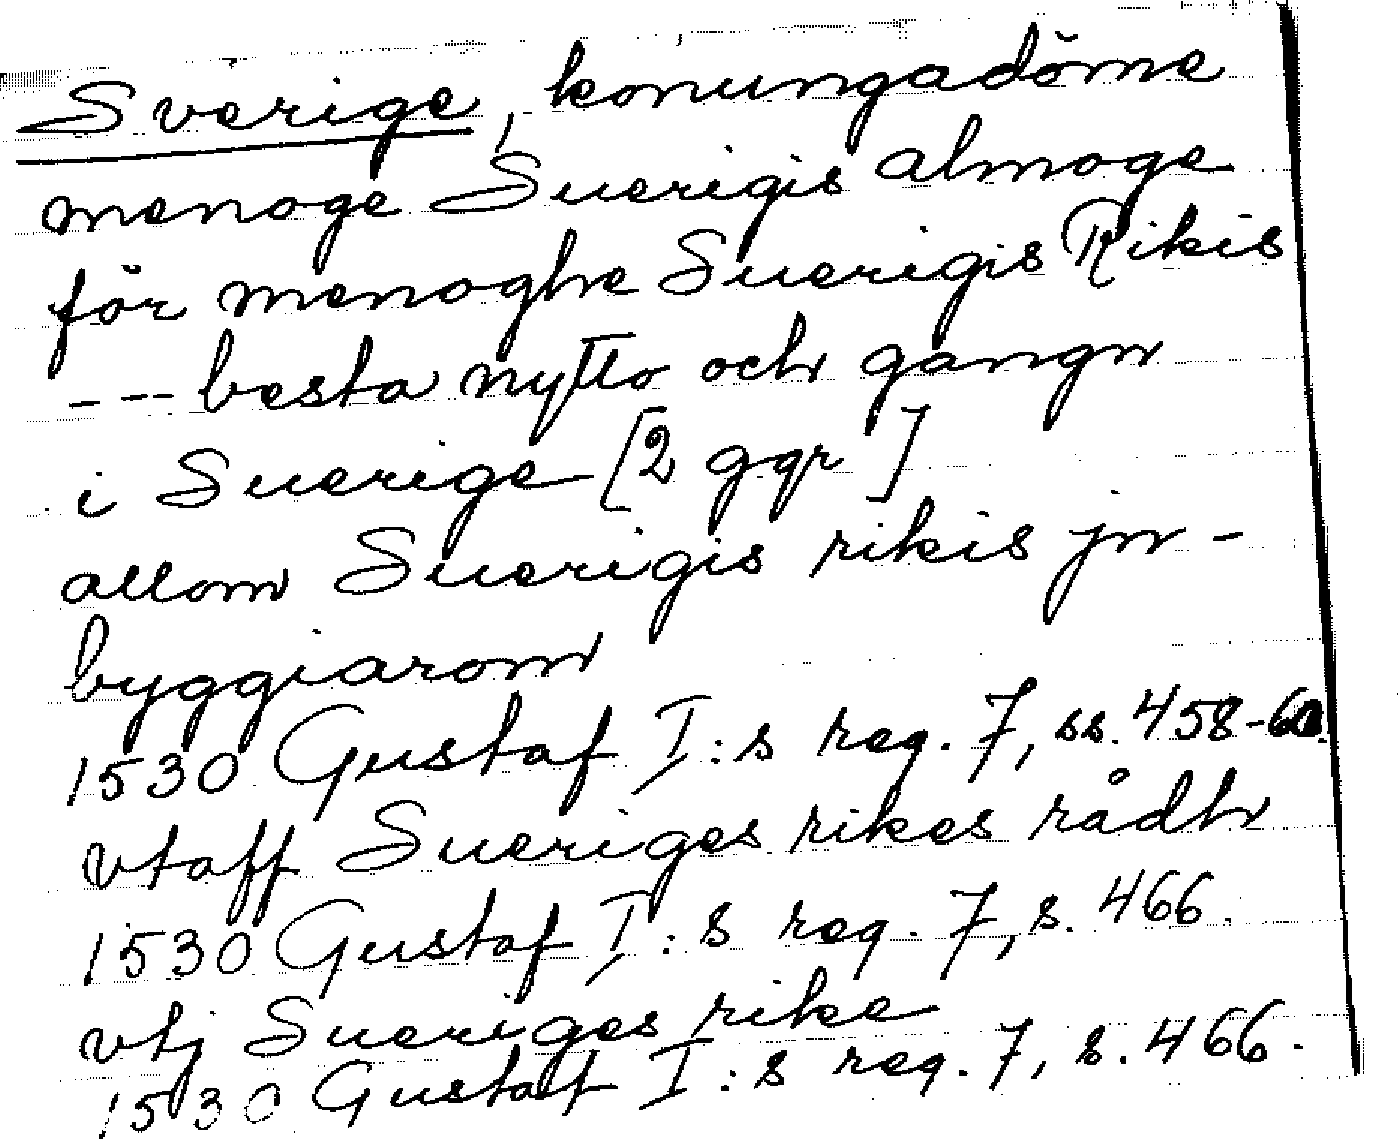 Sverige, konungadöme
menoge Suerigis almoge
för menoghe Suerigis Rikis
--- besta nytto och gangn
i Suerige [2 ggr]
allom Suerigis rikis jn-
byggiarom
1530 Gustaf I:s reg. 7, ss. 458-60.
vtaff Sueriges rikes rådh
1530 Gustaf I:s reg. 7, s. 466.
vtj Sueriges rike
1530 Gustaf I:s reg. 7, s. 466.